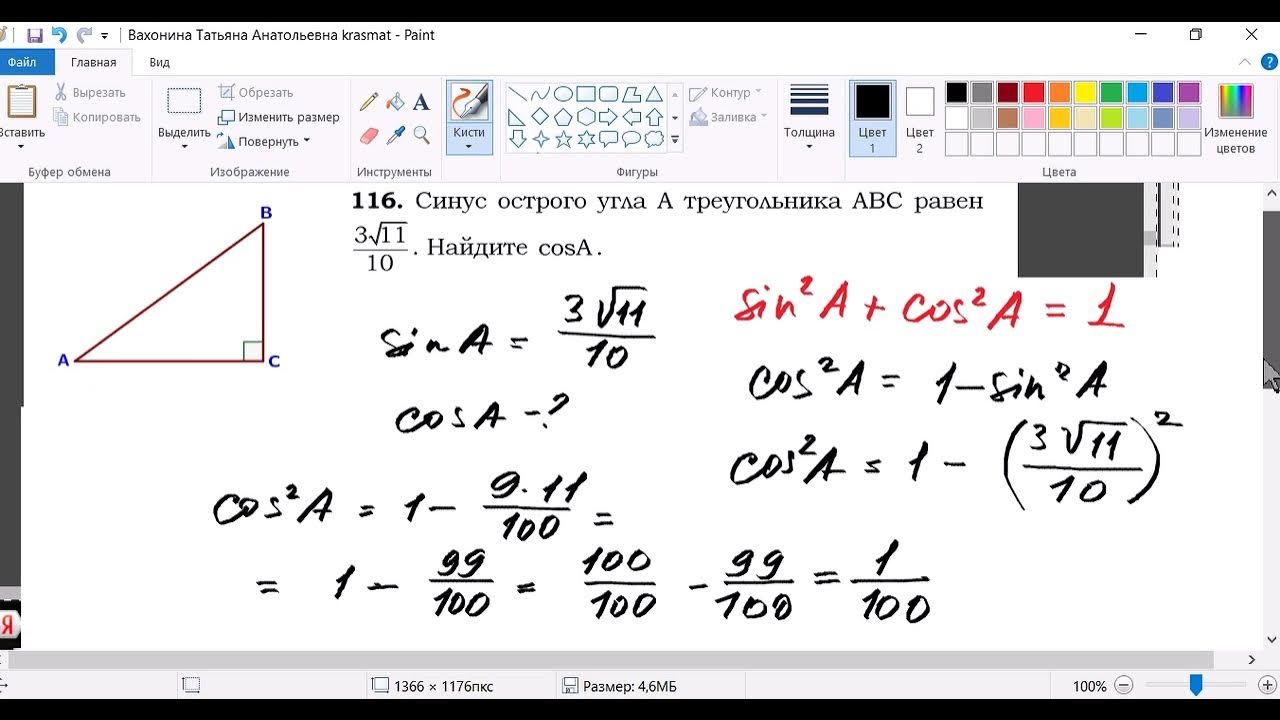 Вахонина Татьяна Анатольевна krasmat - Paint
Файл Главная Вид
Вставить
Вырезать
Копировать
Буфер обмена
Выделить
Обрезать
Изменить размер
Повернуть
Изображение
Инструменты
Кисти
Контур
Заливка
Фигуры
Толщина
Цвет 1
Цвет 2
Изменение цветов
Цвета
116. Синус острого угла A треугольника ABC равен
3√11/10. Найдите cosA.
B
A
C
sin A = 3√11/10
cos A - ?
sin²A + cos²A = 1
cos²A = 1 - sin²A
cos²A = 1 - (3√11/10)²
cos²A = 1 - 9·11/100 =
= 1 - 99/100 = 100/100 - 99/100 = 1/100
Я
1366 × 1176пкс
Размер: 4,6МБ
100%